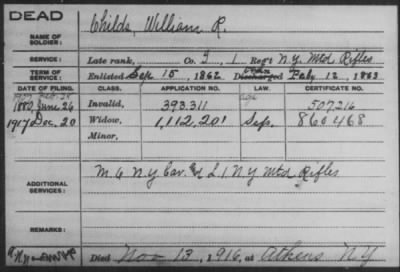 DEAD
NAME OF SOLDIER: Childs, William R.
SERVICE: Late rank, Co. I, 1 Reg't N.Y. Mtd Rifles
TERM OF SERVICE: Enlisted Sep 15, 1862 Discharged Feby. 12, 1863
DATE OF FILING. CLASS. APPLICATION NO. LAW. CERTIFICATE NO.
1880, June 26 Invalid, 393.311 507,216
1917 Dec. 20 Widow, 1,112,201 Sep. 860468
Minor,
ADDITIONAL SERVICES: M. 6 N.Y. Cav. L 1 N.Y. Mtd Rifles
REMARKS:
Died Nov 13, 1916, at Athens N.Y.